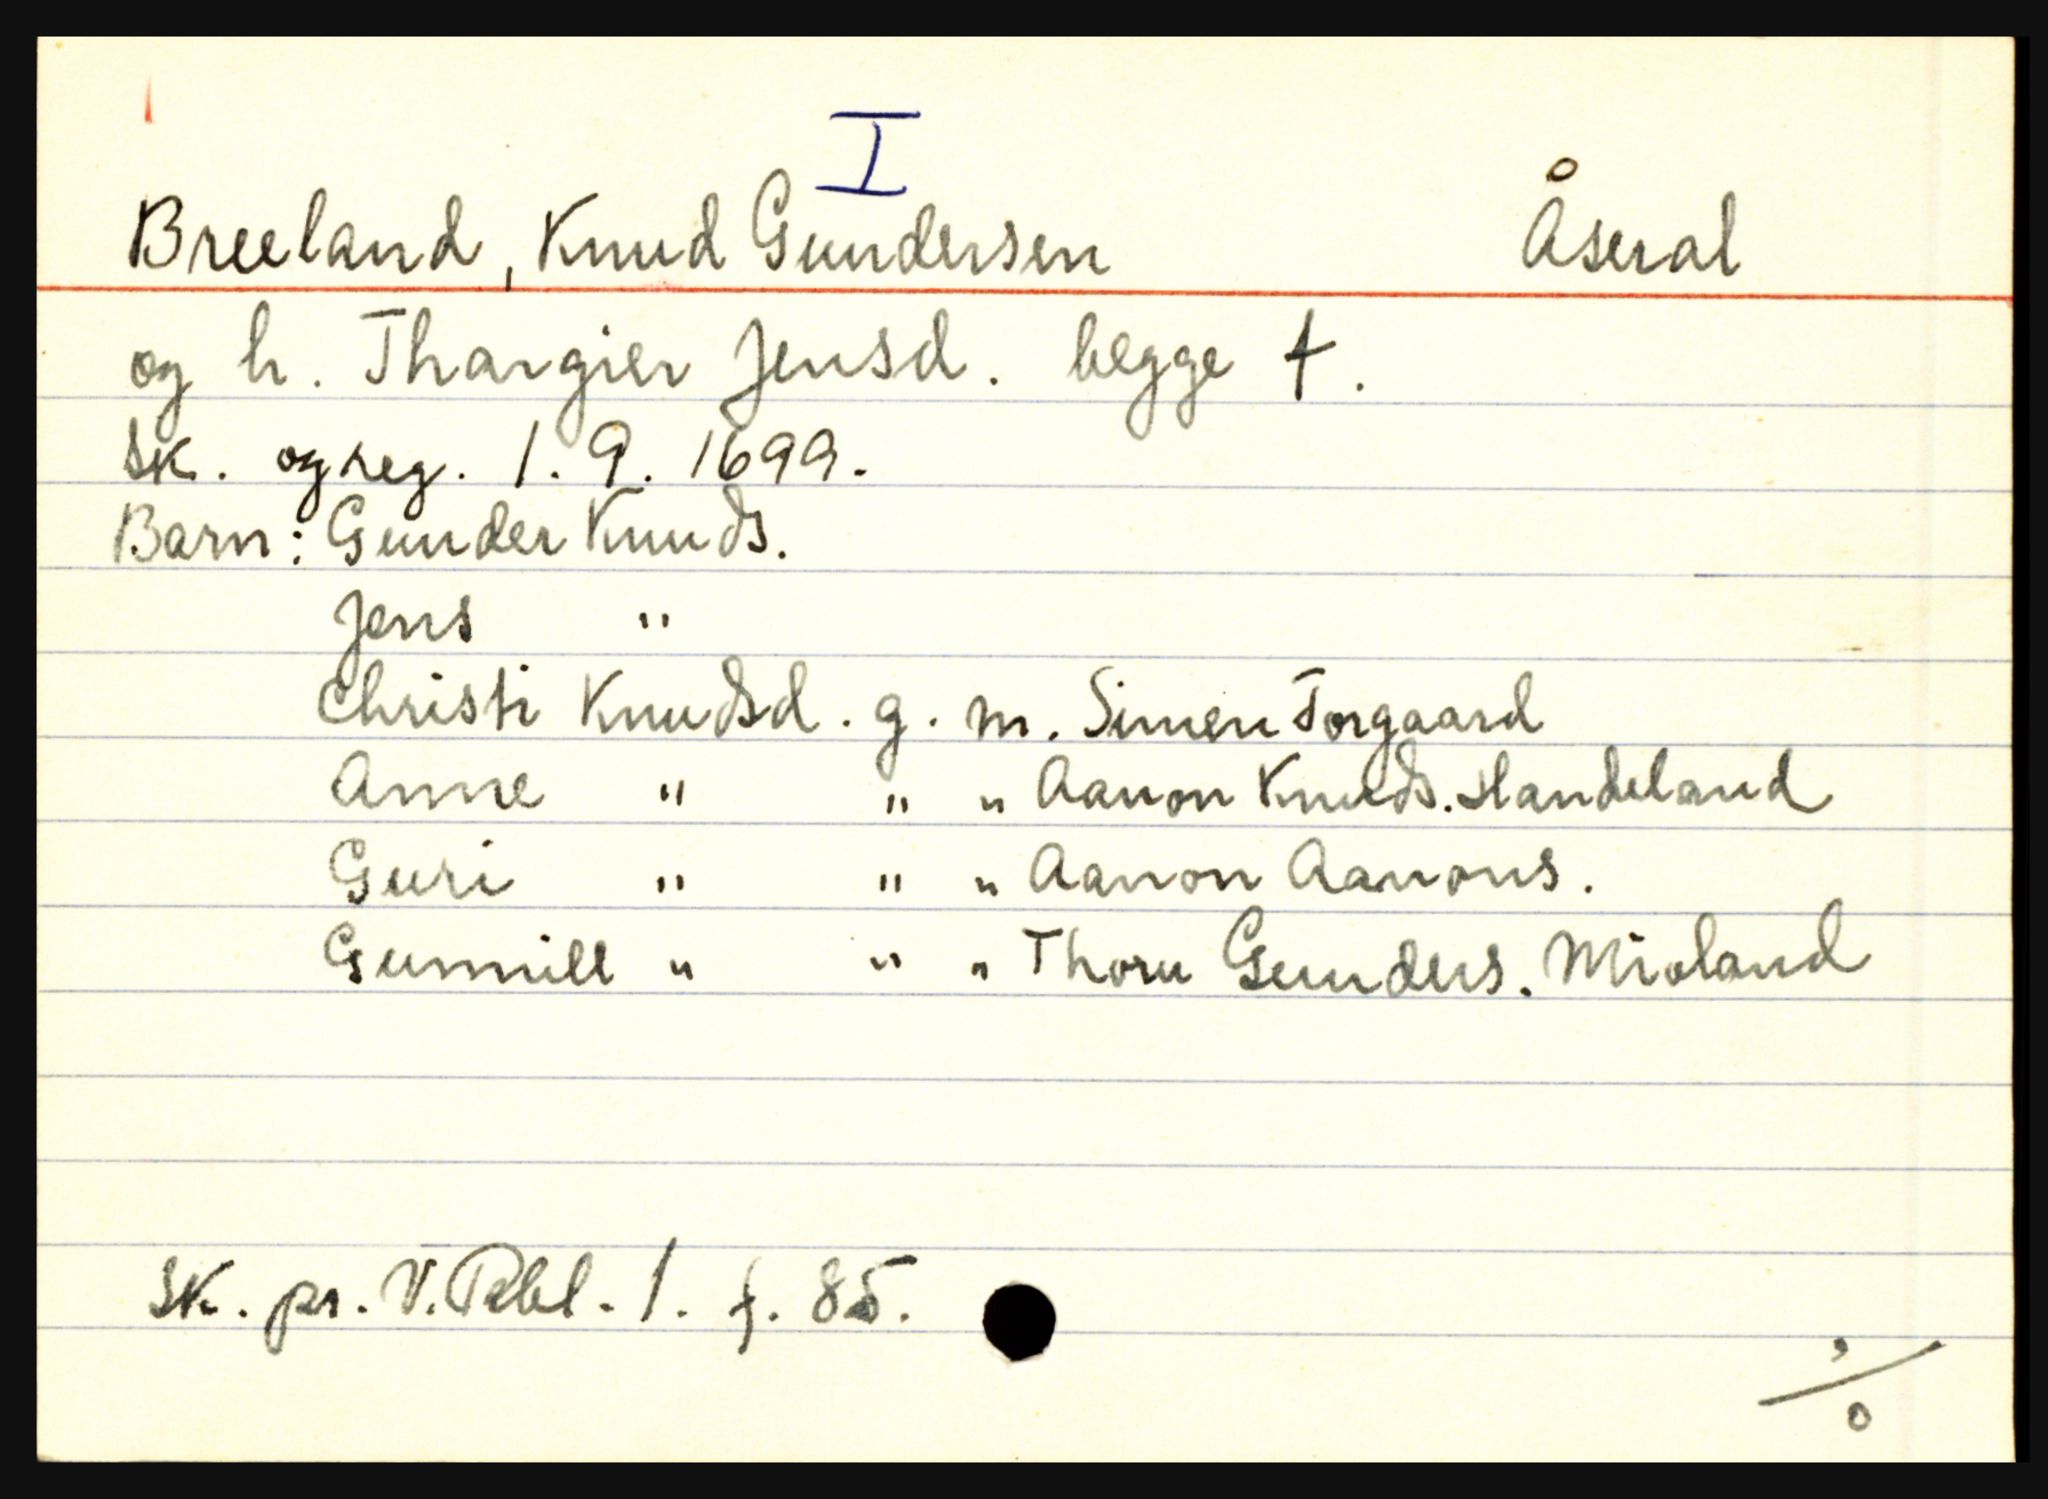 I
Breeland, Knud Gundersen Åseral
og h. Thargier Jensd. begge †.
Sk. og reg. 1. 9. 1699.
Barn: Gunder Knuds.
Jens "
Christi Knudsd. g. m. Simen Torgaard
Anne " " " Aanon Knuds. Handeland
Guri " " " Aanon Aanons.
Gunnill " " " Thoru Gunders. Mioland
Sk. pr. V. Rbl. 1. f. 85.